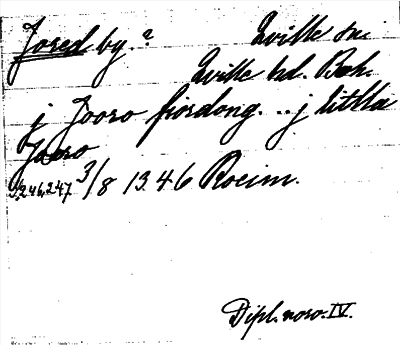 Jored by.? Qville sn.
Qville hd. Boh.
j Jooro fiordong. .. j litlla
Jooro
3/8 1346 Roeim.
Dipl. norv. IV.